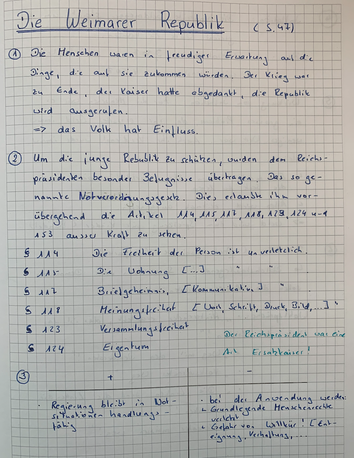 Die Weimarer Republik (S.47)
① Die Menschen waren in freudiger Erwartung auf die
Dinge, die auf sie zukommen würden. Der Krieg war
zu Ende, der Kaiser hatte abgedankt, die Republik
wird ausgerufen.
=> das Volk hat Einfluss.
② Um die junge Rebublik zu schützen, wurden dem Reichs-
präsidenten besonder Befugnisse übertragen. Das so ge-
nannte Notverordnungsgesetz. Dies erlaubte ihm vor-
übergehend die Artikel 114, 115, 117, 118, 123, 124 und
153 ausser Kraft zu setzen.
§ 114 Die Freiheit der Person ist unverletzlich.
§ 115 Die Wohnung [...] " "
§ 117 Briefgeheimnis, [Kommunikation] "
§ 118 Meinungsfreiheit [Wort, Schrift, Druck, Bild, ...] "
§ 123 Versammlungsfreiheit
§ 124 Eigentum
Der Reichspräsident war eine
Art Ersatzkaiser!
③ + -
• Regierung bleibt in Not-
situationen handlungs-
fähig
• bei der Anwendung werden
Grundlegende Menschenrechte
verletzt
Gefahr von Willkür! [Ent-
eignung, Verhaftung, ...